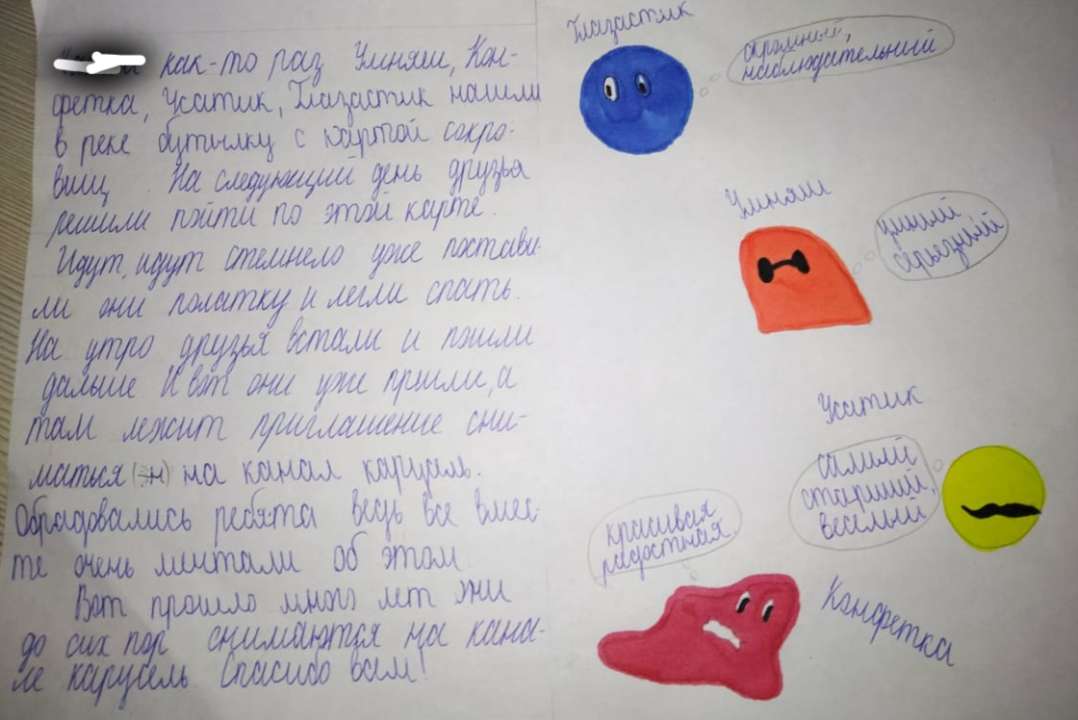 как-то раз Умняш, Кон-
фетка, Усатик, Глазастик нашли
в реке бутылку с картой сокро-
вищ. На следующий день друзья
решили пойти по этой карте.
Идут, идут стемнело уже постави-
ли они полатку и легли спать.
На утро друзья встали и пошли
дальше И вот они уже пришли, а
там лежит приглашение сни-
маться на канал каруаль.
Обрадовались ребята ведь все вмес-
те очень мечтали об этом
Вот прошло много лет они
до сих пор снимаются на кана-
ле карусель Спасибо вам!
Глазастик
скромный,
наблюдательный
Умняш
умный
серьезный
Усатик
самый
старший,
веселый
красивая
радостная
Конфетка